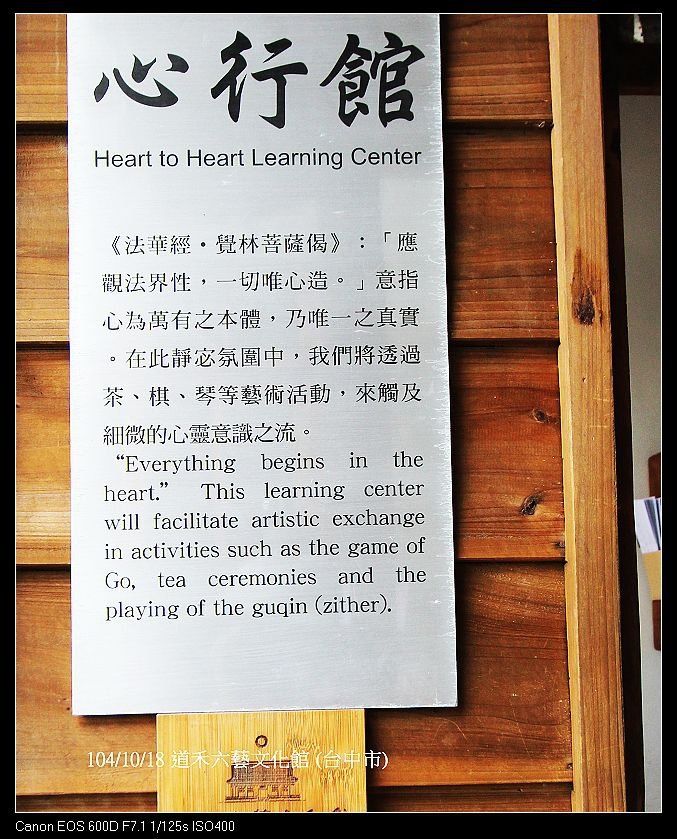 心行館
Heart to Heart Learning Center
《法華經•覺林菩薩偈》：「應
觀法界性，一切唯心造。」意指
心為萬有之本體，乃唯一之真實
。在此靜宓氛圍中，我們將透過
茶、棋、琴等藝術活動，來觸及
細微的心靈意識之流。
“Everything begins in the
heart.” This learning center
will facilitate artistic exchange
in activities such as the game of
Go, tea ceremonies and the
playing of the guqin (zither).
104/10/18 道禾六藝文化館 (台中市)
Canon EOS 600D F7.1 1/125s ISO400